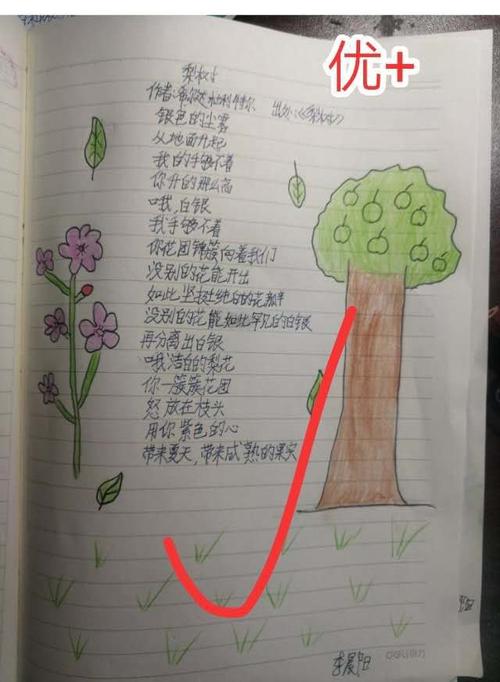 优+
梨树
作者:希尔达·杜利特尔 出处:《梨树》
银色的尘雾
从地面升起
我的手够不着
你升的那么高
哦,白银
我手够不着
你花团锦簇向着我们
没别的花能开出
如此坚挺纯白的花瓣
没别的花能如此罕见的白银
再分离出白银
哦洁白的梨花
你一簇簇花团
怒放在枝头
用你紫色的心
带来夏天,带来成熟的果实
李晨阳